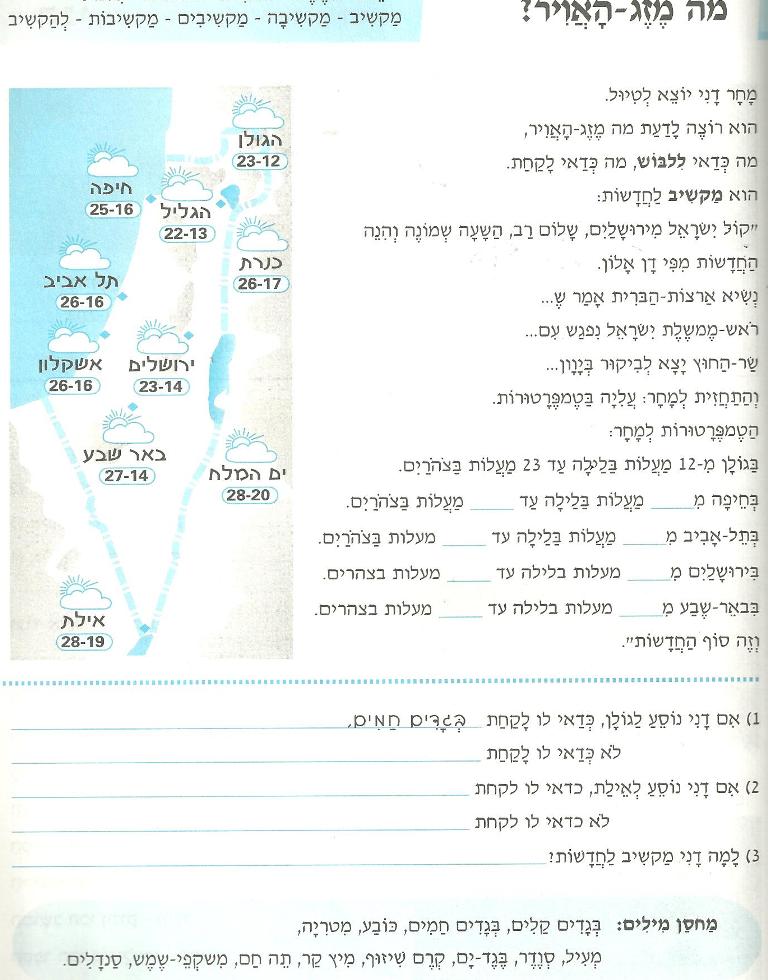 מַקְשִׁיב - מַקְשִׁיבָה - מַקְשִׁיבִים - מַקְשִׁיבוֹת - לְהַקְשִׁיב
מה מֶזֶג-הָאֲוִיר?
מָחָר דָנִי יוֹצֵא לְטִיוּל.
הוּא רוֹצֶה לָדַעַת מה מֶזֶג-הָאֲוִיר,
מה כְּדַאי לִלְבּוֹשׁ, מה כְּדַאי לָקַחַת.
הוא מַקְשִׁיב לַחֲדָשׁוֹת:
"קוֹל יִשְׂרָאֵל מִירוּשָׁלַיִם, שָׁלוֹם רַב, הַשָּׁעָה שְׁמוֹנֶה וְהִנֵּה
הַחֲדָשׁוֹת מִפִּי דָן אָלוֹן.
נְשִׂיא אַרְצוֹת-הַבְּרִית אָמַר שֶ...
רֹאשׁ-מֶמְשֶׁלֶת יִשְׂרָאֵל נִפְגַּשׁ עִם...
שַׂר-הַחוּץ יָצָא לְבִיקוּר בְּיָוָון...
וְהַתַּחֲזִית לְמָחָר: עֲלִיָּה בַּטֶמְפֶּרָטוּרוֹת.
הַטֶמְפֶּרָטוּרוֹת לְמָחָר:
בַּגּוֹלָן מִ-12 מַעֲלוֹת בַּלַּיְלָה עַד 23 מַעֲלוֹת בַּצָּהֳרַיִם.
בְּחֵיפָה מִ____ מַעֲלוֹת בַּלַּיְלָה עַד ____ מַעֲלוֹת בַּצָּהֳרַיִם.
בְּתֵל-אָבִיב מִ____ מַעֲלוֹת בַּלַּיְלָה עַד ____ מעלות בַּצָּהֳרַיִם.
בִּירוּשָׁלַיִם מִ____ מעלות בלילה עד ____ מעלות בצהרים.
בִּבאֵר-שֶׁבַע מִ____ מעלות בלילה עד ____ מעלות בצהרים.
וְזֶה סוֹף הַחֲדָשׁוֹת".
הגולן
23-12
חיפה
25-16
הגליל
22-13
כנרת
26-17
תל אביב
26-16
אשקלון
26-16
ירושלים
23-14
באר שבע
27-14
ים המלח
28-20
אילת
28-19
1) אִם דָנִי נוֹסֵעַ לַגוֹלָן, כְּדַאי לוֹ לָקַחַת בְּגָדִים חַמִּים,
לֹא כְּדַאי לוֹ לָקַחַת
2) אִם דָנִי נוֹסֵעַ לְאֵילַת, כדאי לו לקחת
לֹא כדאי לו לקחת
3) לָמָה דָנִי מַקְשִׁיב לַחֲדָשׁוֹת?
מַחְסַן מִילִים: בְּגָדִים קַלִּים, בְּגָדִים חַמִּים, כּוֹבַע, מִטְרִיָּה,
מְעִיל, סְוֶדֶר, בֶּגֶד-יָם, קְרֶם שִׁיזוּף, מִיץ קַר, תֵּה חַם, מִשְׁקְפֵי-שֶׁמֶשׁ, סַנְדָּלִים.